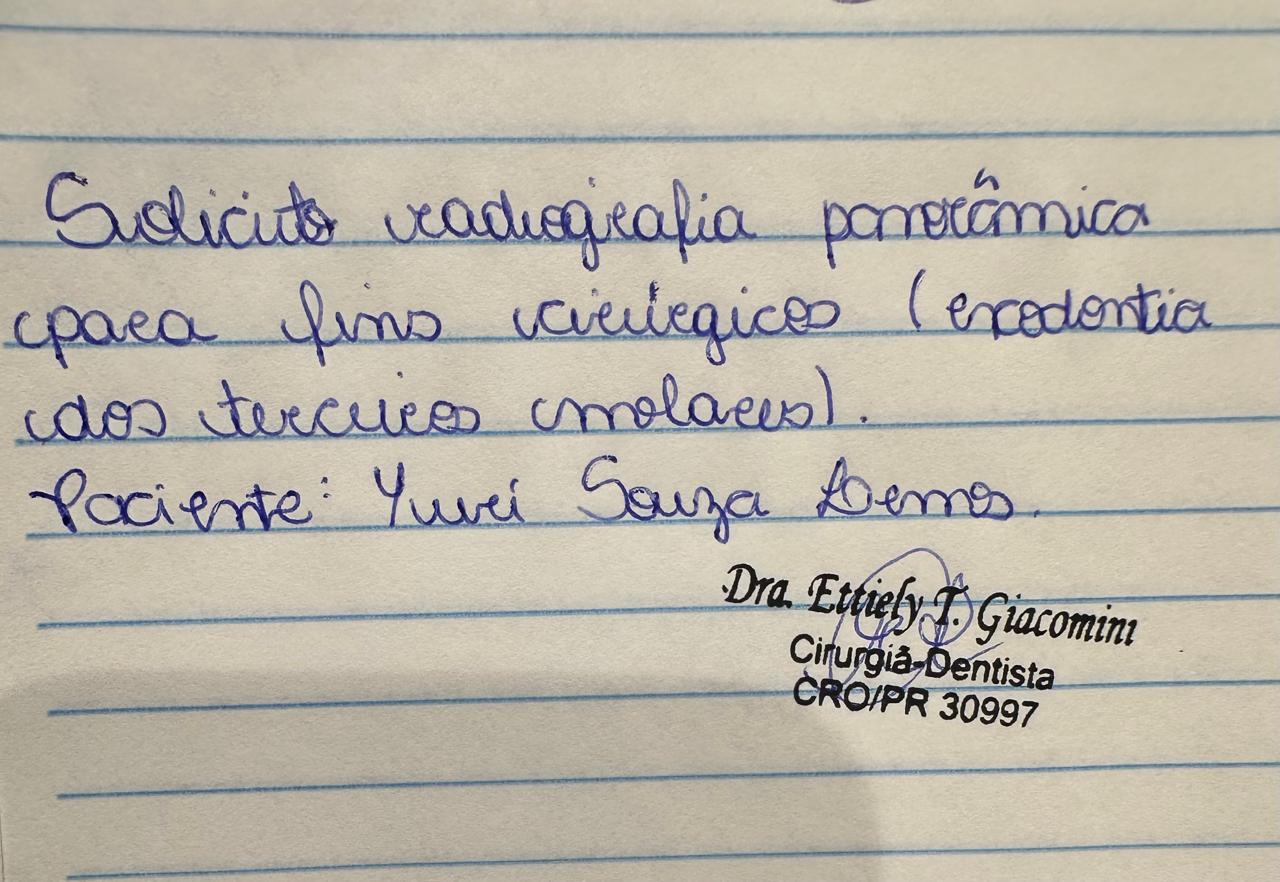 Solicito radiografia panorâmica
para fins cirúrgicos (exodontia
dos terceiros molares).
Paciente: Yuri Souza Lemos.
Dra. Ettiely T. Giacomini
Cirurgiã-Dentista
CRO/PR 30997